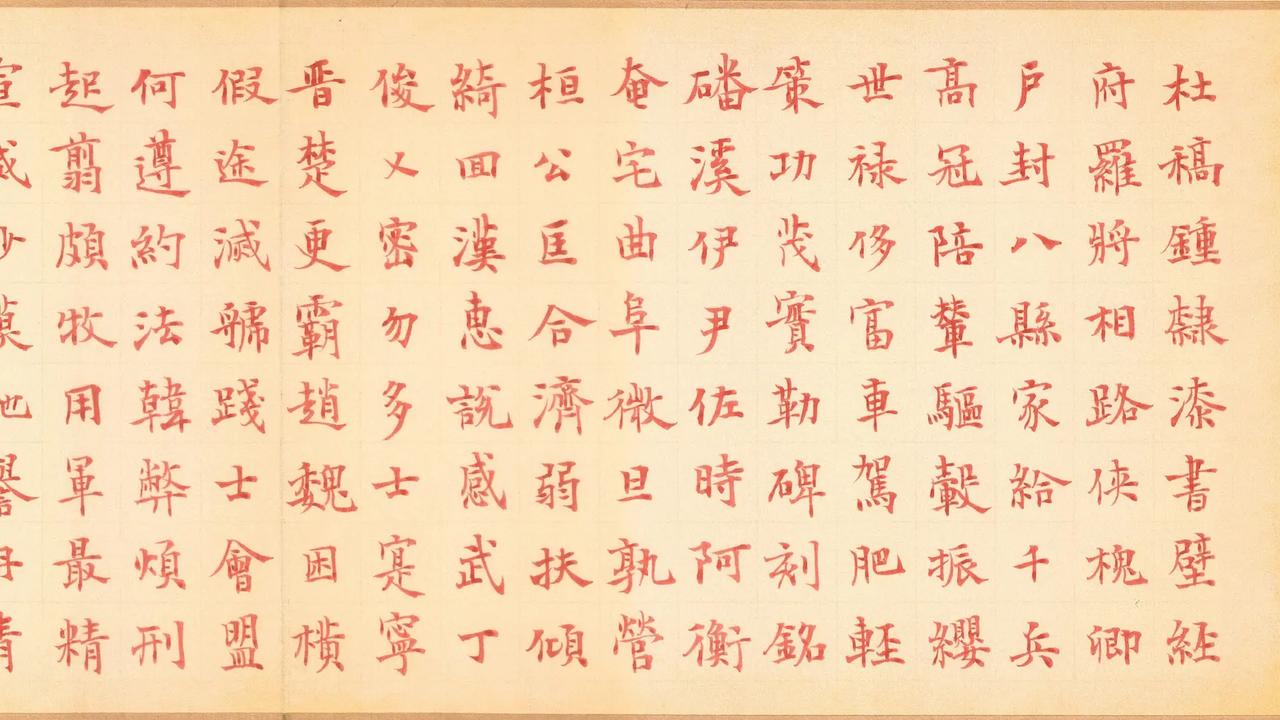 杜稿鍾隸漆書壁経
府羅將相路俠槐卿
戶封八縣家給千兵
高冠陪輦驅轂振纓
世禄侈富車駕肥軽
策功茂實勒碑刻銘
磻溪伊尹佐時阿衡
奄宅曲阜微旦孰營
桓公匡合濟弱扶傾
綺回漢惠說感武丁
俊乂密勿多士寔寧
晋楚更霸趙魏困橫
假途滅虢踐士會盟
何遵約法韓弊煩刑
起翦頗牧用軍最精
宣威沙漠馳譽丹青